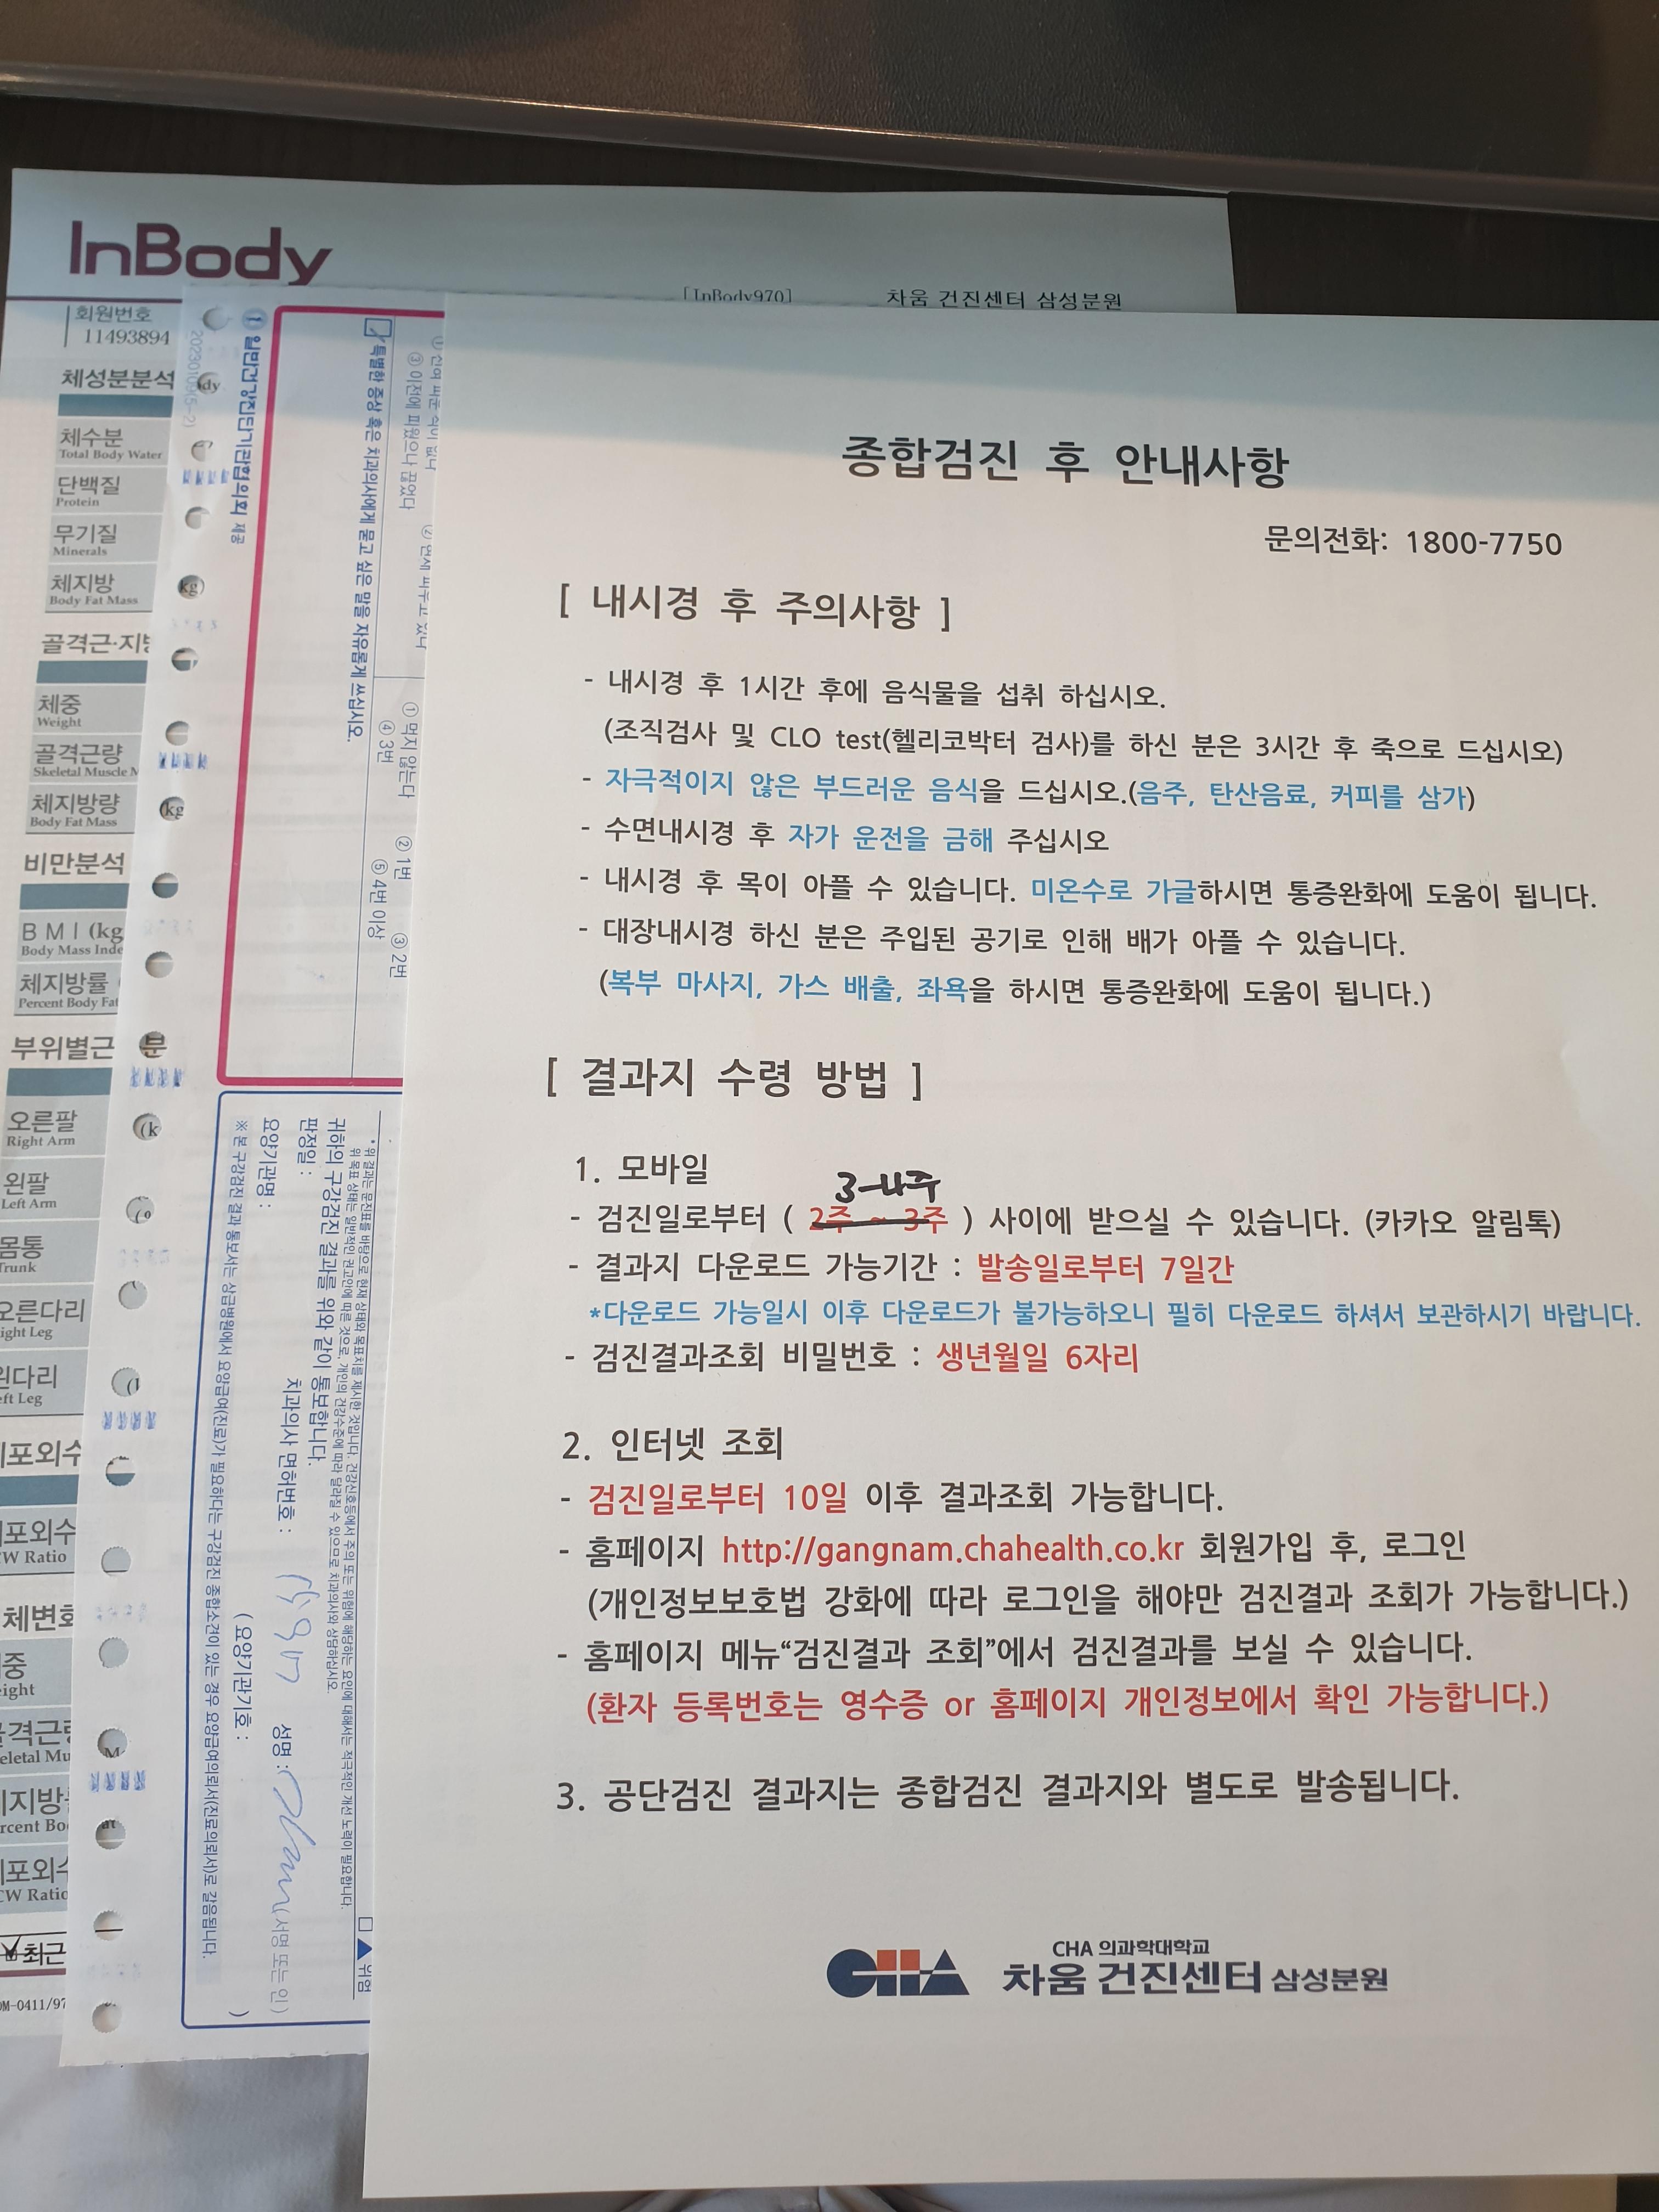 InBody
[InBody970]
차움 건진센터 삼성분원
회원번호
11493894
체성분분석
체수분
Total Body Water
단백질
Protein
무기질
Minerals
체지방
Body Fat Mass
골격근·지방
체중
Weight
골격근량
Skeletal Muscle M
체지방량
Body Fat Mass
비만분석
BMI (kg
Body Mass Inde
체지방률
Percent Body Fat
부위별근
오른팔
Right Arm
왼팔
Left Arm
몸통
Trunk
오른다리
Right Leg
왼다리
Left Leg
포외수
CW Ratio
최근
일반건강진단기관협의회 제공
특별한 증상 혹은 치과의사에게 묻고 싶은 말을 자유롭게 쓰십시오.
③ 이전에 피웠으나 끊었다
① 먹지 않는다 ② 1번 ③ 2번
④ 3번 ⑤ 4번 이상
위험
귀하의 구강검진 결과를 위와 같이 통보합니다.
판정일 :
치과의사 면허번호 :
성명 :
(서명 또는 인)
요양기관명 :
(요양기관기호 : )
※ 본 구강검진 결과 통보서는 상급병원에서 요양급여(진료)가 필요하다는 구강검진 종합소견이 있는 경우 요양급여의뢰서(진료의뢰서)로 갈음됩니다.
종합검진 후 안내사항
문의전화: 1800-7750
[ 내시경 후 주의사항 ]
- 내시경 후 1시간 후에 음식물을 섭취 하십시오.
(조직검사 및 CLO test(헬리코박터 검사)를 하신 분은 3시간 후 죽으로 드십시오)
- 자극적이지 않은 부드러운 음식을 드십시오.(음주, 탄산음료, 커피를 삼가)
- 수면내시경 후 자가 운전을 금해 주십시오
- 내시경 후 목이 아플 수 있습니다. 미온수로 가글하시면 통증완화에 도움이 됩니다.
- 대장내시경 하신 분은 주입된 공기로 인해 배가 아플 수 있습니다.
(복부 마사지, 가스 배출, 좌욕을 하시면 통증완화에 도움이 됩니다.)
[ 결과지 수령 방법 ]
1. 모바일
3-4주
- 검진일로부터 ( 2주 ~ 3주 ) 사이에 받으실 수 있습니다. (카카오 알림톡)
- 결과지 다운로드 가능기간 : 발송일로부터 7일간
*다운로드 가능일시 이후 다운로드가 불가능하오니 필히 다운로드 하셔서 보관하시기 바랍니다.
- 검진결과조회 비밀번호 : 생년월일 6자리
2. 인터넷 조회
- 검진일로부터 10일 이후 결과조회 가능합니다.
- 홈페이지 http://gangnam.chahealth.co.kr 회원가입 후, 로그인
(개인정보보호법 강화에 따라 로그인을 해야만 검진결과 조회가 가능합니다.)
- 홈페이지 메뉴“검진결과 조회”에서 검진결과를 보실 수 있습니다.
(환자 등록번호는 영수증 or 홈페이지 개인정보에서 확인 가능합니다.)
3. 공단검진 결과지는 종합검진 결과지와 별도로 발송됩니다.
CHA
CHA 의과학대학교
차움 건진센터 삼성분원